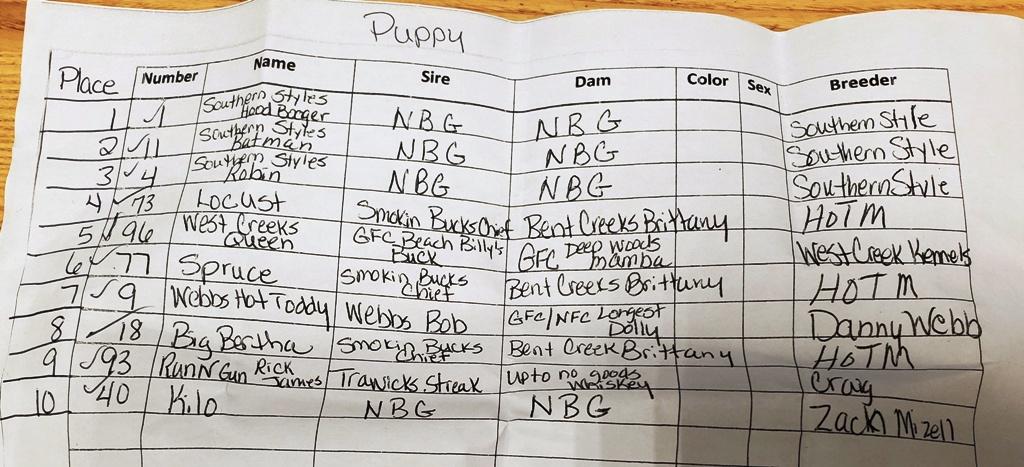 Puppy
Place Number Name Sire Dam Color Sex Breeder
1 ✓1 Southern Styles Hood Banger NBG NBG Southern Style
2 ✓11 Southern Styles Batman NBG NBG Southern Style
3 ✓4 Southern Styles Robin NBG NBG Southern Style
4 ✓73 Locust Smokin Bucks Chief Bent Creeks Brittany HOTM
5 ✓96 West Creeks Queen GFC Beach Billy's Buck GFC Deep Woods mamba West Creek Kennels
6 ✓77 Spruce Smokin Bucks Chief Bent Creeks Brittany HOTM
7 ✓9 Webbs Hot Toddy Webbs Bob GFC/NFC Longest Dolly Danny Webb
8 ✓18 Big Bertha Smokin Bucks Chief Bent Creek Brittany HOTM
9 ✓93 Run N Gun Rick James Trawicks Streak up to no goods Whiskey Craig
10 ✓40 Kilo NBG NBG Zach Mizell